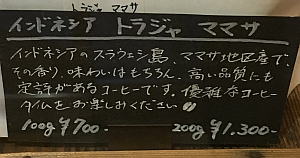 トラジャ ママサ
インドネシア トラジャ ママサ
インドネシアのスラウェシ島、ママサ地区産で、
その香り、味わいはもちろん、高い品質にも
定評があるコーヒーです。優雅なコーヒー
タイムをお楽しみください
100g ¥700- 200g ¥1,300-